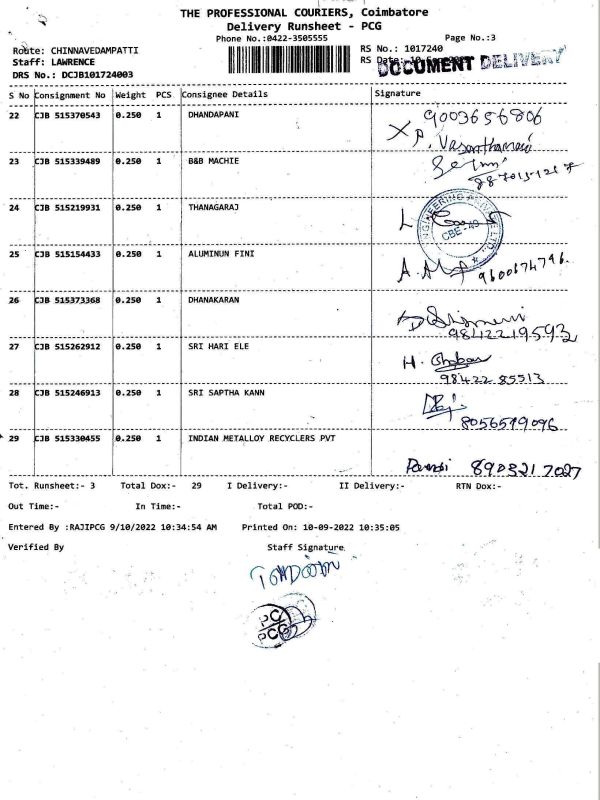 THE PROFESSIONAL COURIERS, Coimbatore
Delivery Runsheet - PCG
Phone No.:0422-3505555
Page No.:3
Route: CHINNAVEDAMPATTI
RS No.: 1017240
Staff: LAWRENCE
RS Date:
DOCUMENT DELIVERY
DRS No.: DCJB101724003
S No Consignment No Weight PCS Consignee Details Signature
22 CJB 515370543 0.250 1 DHANDAPANI 9003656806
23 CJB 515339489 0.250 1 B&B MACHIE
24 CJB 515219931 0.250 1 THANAGARAJ
CBE - 49
25 CJB 515154433 0.250 1 ALUMINUN FINI
9600674796.
26 CJB 515373368 0.250 1 DHANAKARAN
9842219593
27 CJB 515262912 0.250 1 SRI HARI ELE
98422 85513
28 CJB 515246913 0.250 1 SRI SAPTHA KANN
8056519096
29 CJB 515330455 0.250 1 INDIAN METALLOY RECYCLERS PVT
8903217027
Tot. Runsheet:- 3 Total Dox:- 29 I Delivery:- II Delivery:- RTN Dox:-
Out Time:- In Time:- Total POD:-
Entered By :RAJIPCG 9/10/2022 10:34:54 AM Printed On: 10-09-2022 10:35:05
Verified By Staff Signature
PC
PCG